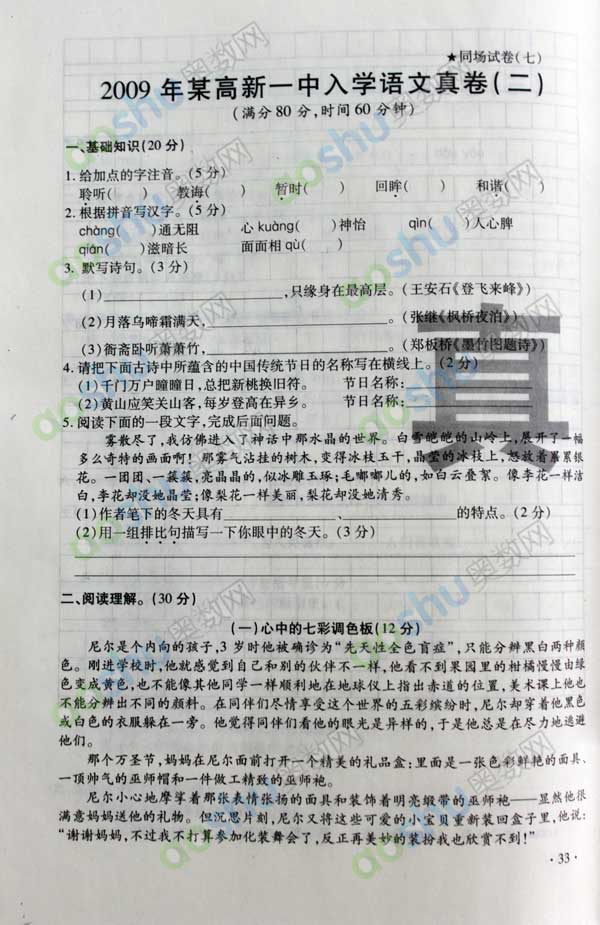 ★同场试卷(七)
2009年某高新一中入学语文真卷(二)
(满分80分,时间60分钟)
一、基础知识(20分)
1.给加点的字注音。(5分)
聆听( ) 教诲( ) 暂时( ) 回眸( ) 和谐( )
2.根据拼音写汉字。(5分)
chàng( )通无阻 心kuàng( )神怡 qìn( )人心脾
qián( )滋暗长 面面相qù( )
3. 默写诗句。(3分)
(1)____,只缘身在最高层。(王安石《登飞来峰》)
(2)月落乌啼霜满天,____。(张继《枫桥夜泊》)
(3)衙斋卧听萧萧竹,____。(郑板桥《墨竹图题诗》)
4.请把下面古诗中所蕴含的中国传统节日的名称写在横线上。(2分)
(1)千门万户曈曈日,总把新桃换旧符。 节日名称:____
(2)黄山应笑关山客,每岁登高在异乡。 节日名称:____
5.阅读下面的一段文字,完成后面问题。
雾散尽了,我仿佛进入了神话中那水晶的世界。白雪皑皑的山岭上,展开了一幅
多么奇特的画面啊!那雾气沾挂的树木,变得冰枝玉干,晶莹的冰枝上,怒放着累累银
花。一团团、一簇簇,亮晶晶的,似冰雕玉琢;毛嘟嘟儿的,如白云叠絮。像李花一样洁
白,李花却没她晶莹;像梨花一样美丽,梨花却没她清秀。
(1)作者笔下的冬天具有____、____的特点。(2分)
(2)用一组排比句描写一下你眼中的冬天。(3分)
二、阅读理解。(30分)
(一)心中的七彩调色板(12分)
尼尔是个内向的孩子,3岁时他被确诊为“先天性全色盲症”,只能分辨黑白两种颜
色。刚进学校时,他就感觉到自己和别的伙伴不一样,他看不到果园里的柑橘慢慢由绿
色变成黄色,也不能像其他同学一样顺利地在地球仪上指出赤道的位置,美术课上他也
不能分辨出不同的颜料。在同伴们尽情享受这个世界的五彩缤纷时,尼尔却穿着他黑色
或白色的衣服躲在一旁。他觉得同伴们看他的眼光是异样的,于是他总是在尽力地逃避
他们。
那个万圣节,妈妈在尼尔面前打开一个精美的礼品盒:里面是一张色彩鲜艳的面具、
一顶帅气的巫师帽和一件做工精致的巫师袍。
尼尔小心地摩挲着那张表情张扬的面具和装饰着明亮缎带的巫师袍——显然他很
满意妈妈送他的礼物。但沉思片刻,尼尔又将这些可爱的小宝贝重新装回盒子里,他说:
“谢谢妈妈,不过我不打算参加化装舞会了,反正再美妙的装扮我也欣赏不到!”
·33·
真
aoshu奥数网
aoshu奥数网
aoshu奥数网
aoshu奥数网